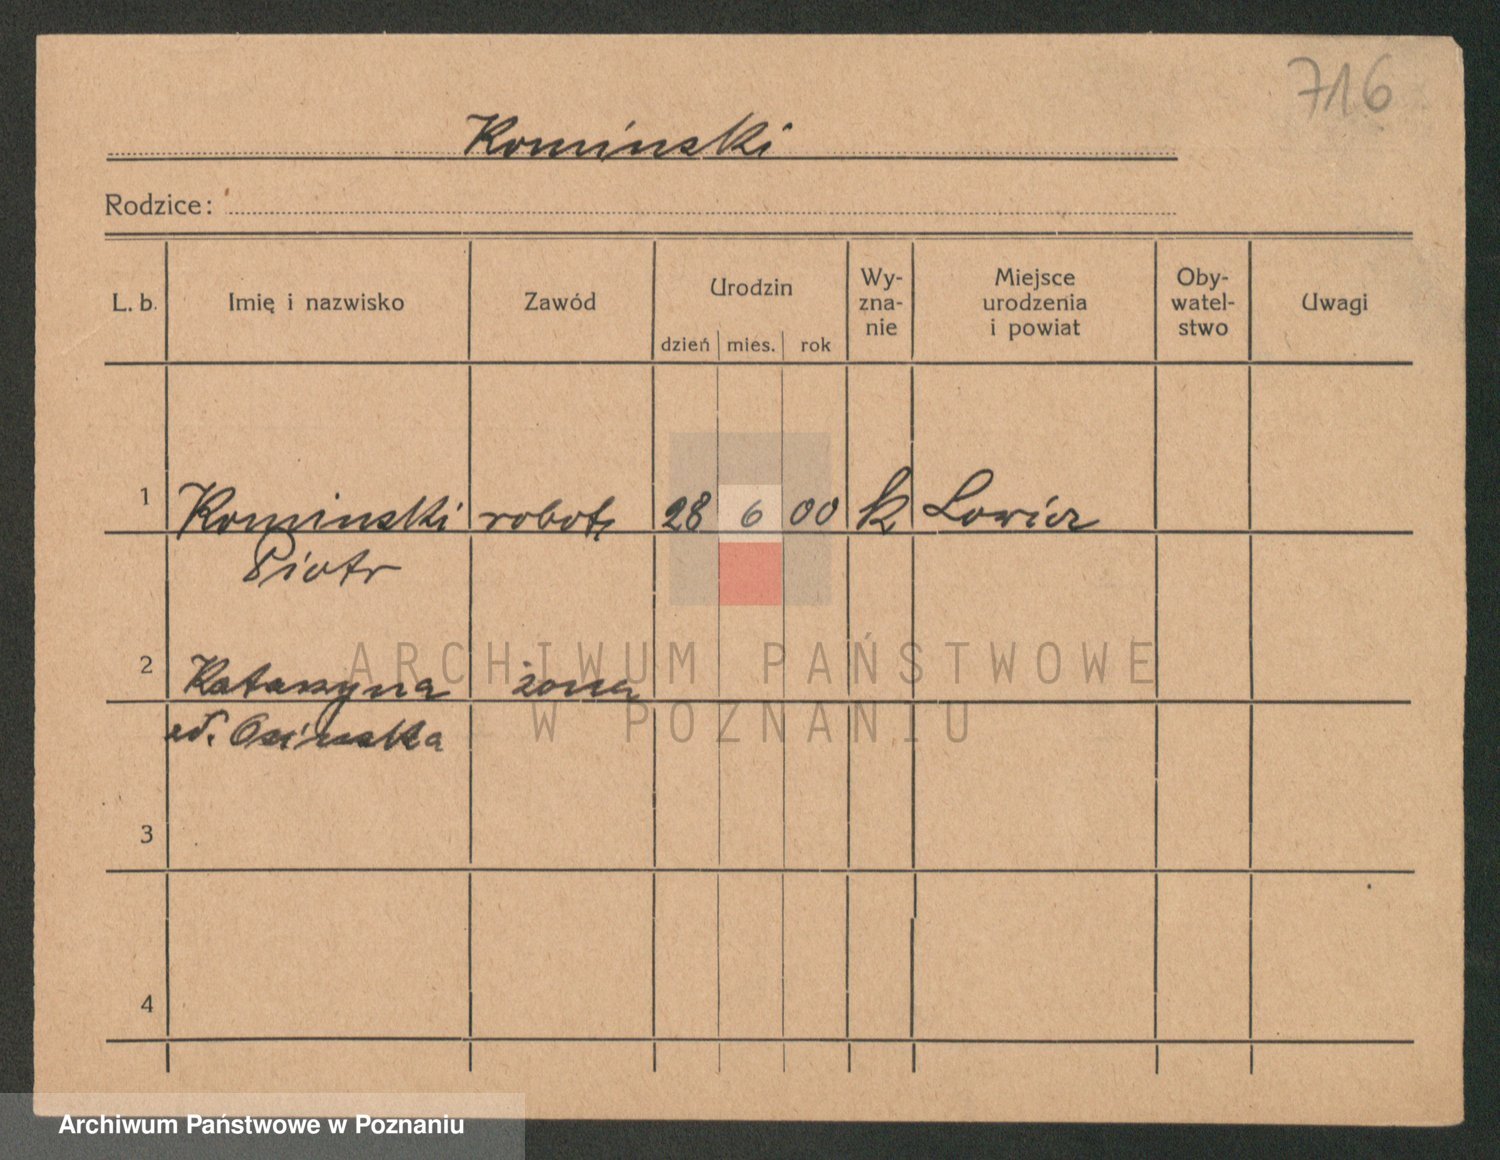 716
Kominski
Rodzice:
L. b. Imię i nazwisko Zawód Urodzin Wy-zna-nie Miejsce urodzenia i powiat Oby-watel-stwo Uwagi
dzień mies. rok
1 Kominski robot. 28 6 00 k Lowicz
Piotr
ARCHIWUM PAŃSTWOWE
2 Katarzyna żona
W POZNANIU
Osinska
3
4
Archiwum Państwowe w Poznaniu